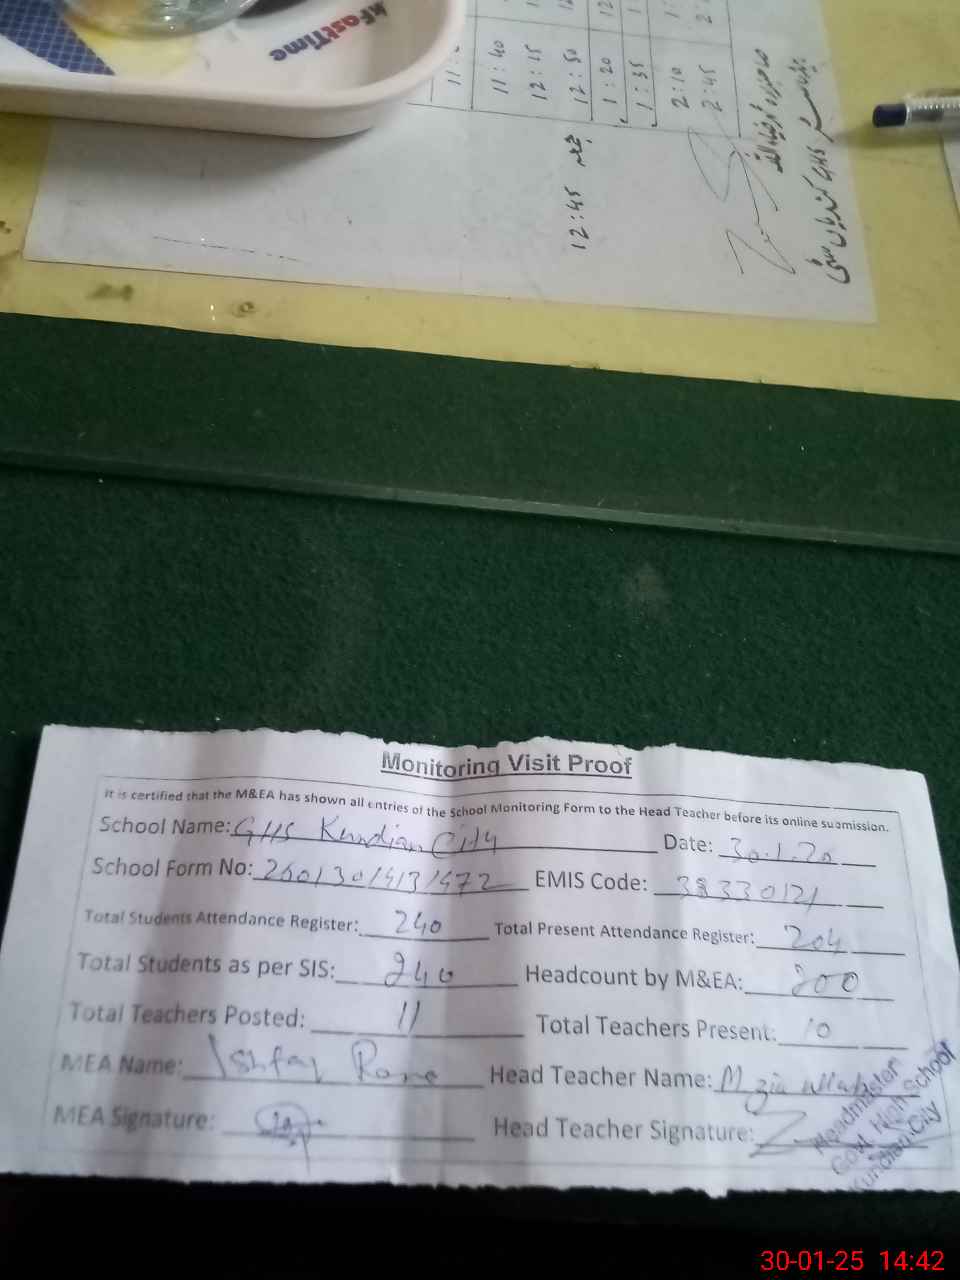 FastTime
11:40
12:15
12:50
1:20
1:35
2:10
2:45
12:45
Monitoring Visit Proof
It is certified that the M&EA has shown all entries of the School Monitoring Form to the Head Teacher before its online submission.
School Name: GHS Kundian City Date: 30.1.20
School Form No: EMIS Code: 38330121
Total Students Attendance Register: 240 Total Present Attendance Register: 204
Total Students as per SIS: 240 Headcount by M&EA: 200
Total Teachers Posted: 11 Total Teachers Present: 10
MEA Name: Ishfaq Head Teacher Name: M Zia Ullah
MEA Signature: Head Teacher Signature:
Headmaster
Govt High School
Kundian City
30-01-25 14:42